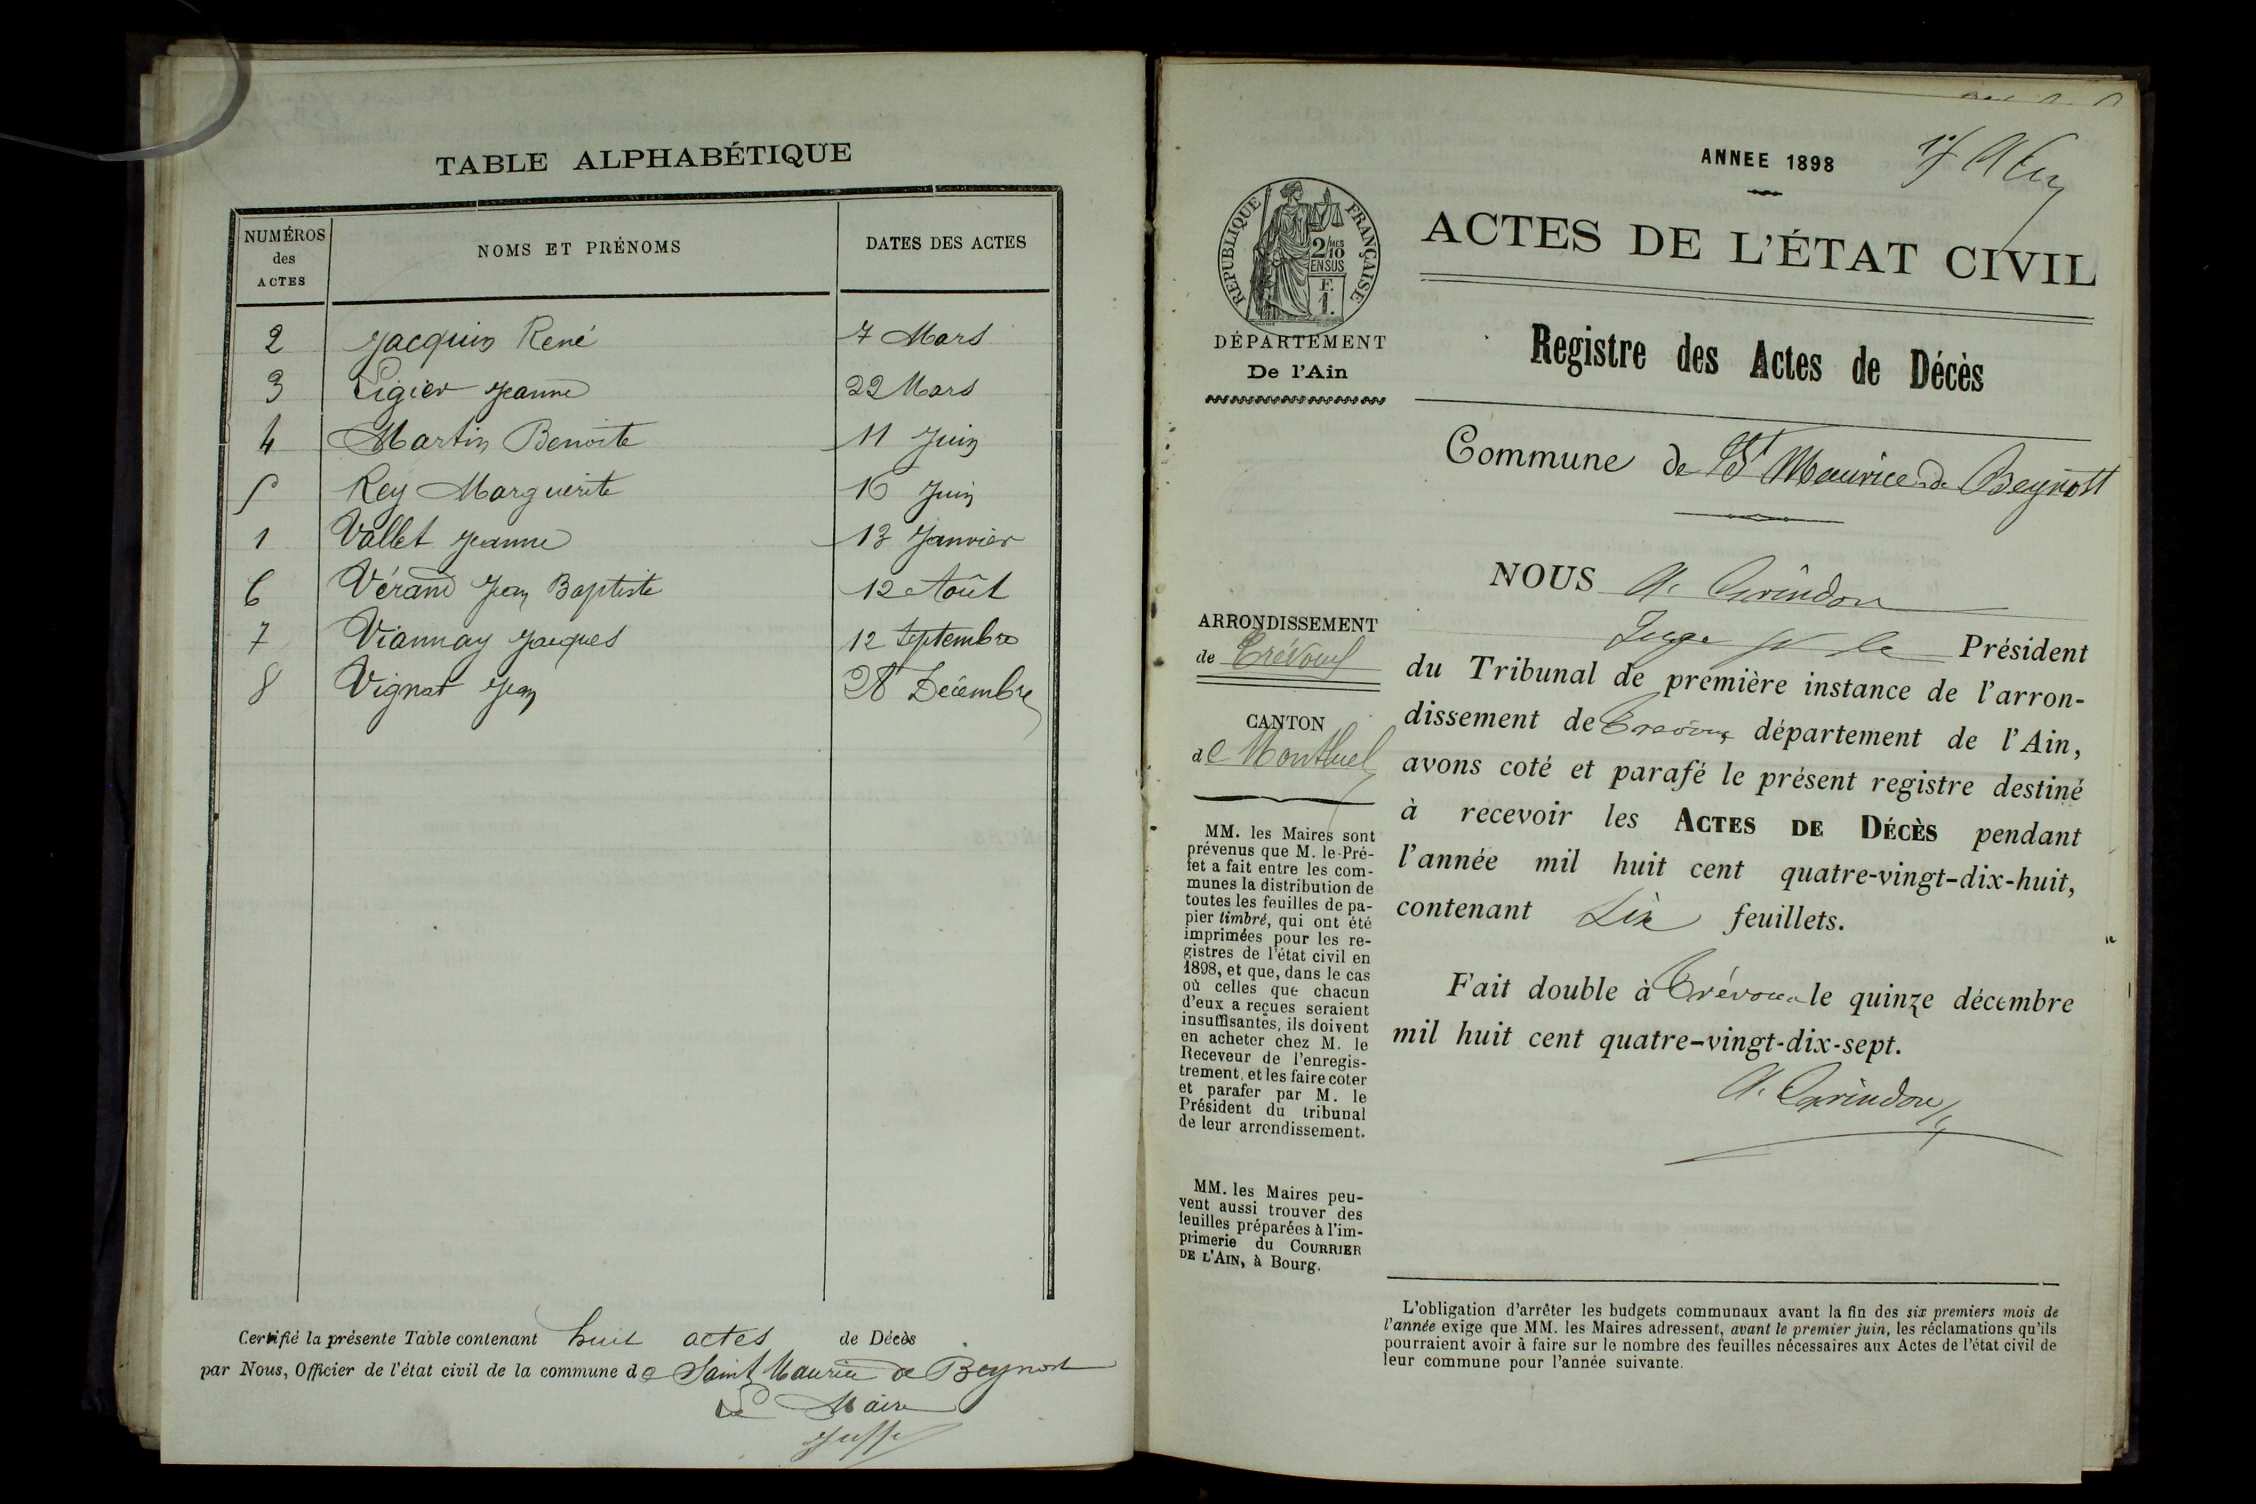 TABLE ALPHABÉTIQUE
NUMÉROS
des
ACTES
NOMS ET PRÉNOMS
DATES DES ACTES
2 Jacquin René 7 Mars
3 Ligier Jeanne 22 Mars
4 Martin Benoite 11 Juin
5 Rey Marguerite 16 Juin
1 Vallet Jeanne 13 Janvier
6 Vérand Jean Baptiste 12 Août
7 Viannay Jacques 12 Septembre
8 Vignat Jean 28 Décembre
Certifié la présente Table contenant huit actes de Décès
par Nous, Officier de l'état civil de la commune de Saint Maurice de Beynost
Le Maire
ANNEE 1898
ACTES DE L'ÉTAT CIVIL
RÉPUBLIQUE FRANÇAISE
2/10MES
EN SUS
F.
1.
DÉPARTEMENT
De l'Ain
Registre des Actes de Décès
Commune de St Maurice de Beynost
NOUS
Juge Président
du Tribunal de première instance de l'arron-
dissement de Trévoux département de l'Ain,
avons coté et parafé le présent registre destiné
à recevoir les ACTES DE DÉCÈS pendant
l'année mil huit cent quatre-vingt-dix-huit,
contenant Six feuillets.
Fait double à Trévoux le quinze décembre
mil huit cent quatre-vingt-dix-sept.
ARRONDISSEMENT
de Trévoux
CANTON
de Montluel
MM. les Maires sont
prévenus que M. le Pré-
fet a fait entre les com-
munes la distribution de
toutes les feuilles de pa-
pier timbré, qui ont été
imprimées pour les re-
gistres de l'état civil en
1898, et que, dans le cas
où celles que chacun
d'eux a reçues seraient
insuffisantes, ils doivent
en acheter chez M. le
Receveur de l'enregis-
trement, et les faire coter
et parafer par M. le
Président du tribunal
de leur arrondissement.
MM. les Maires peu-
vent aussi trouver des
feuilles préparées à l'im-
primerie du COURRIER
DE L'AIN, à Bourg.
L'obligation d'arrêter les budgets communaux avant la fin des six premiers mois de
l'année exige que MM. les Maires adressent, avant le premier juin, les réclamations qu'ils
pourraient avoir à faire sur le nombre des feuilles nécessaires aux Actes de l'état civil de
leur commune pour l'année suivante.